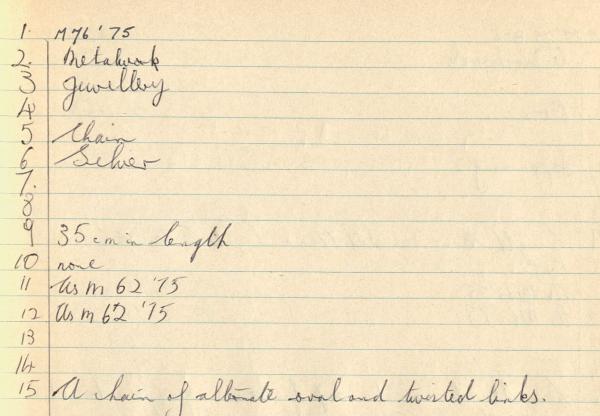 1. M76 '75
2. Metalwork
3 Jewellery
4
5 Chain
6 Silver
7.
8
9 35 cm in length
10 none
11 As M 62 '75
12 As M 62 '75
13
14
15 A chain of alternate oval and twisted links.